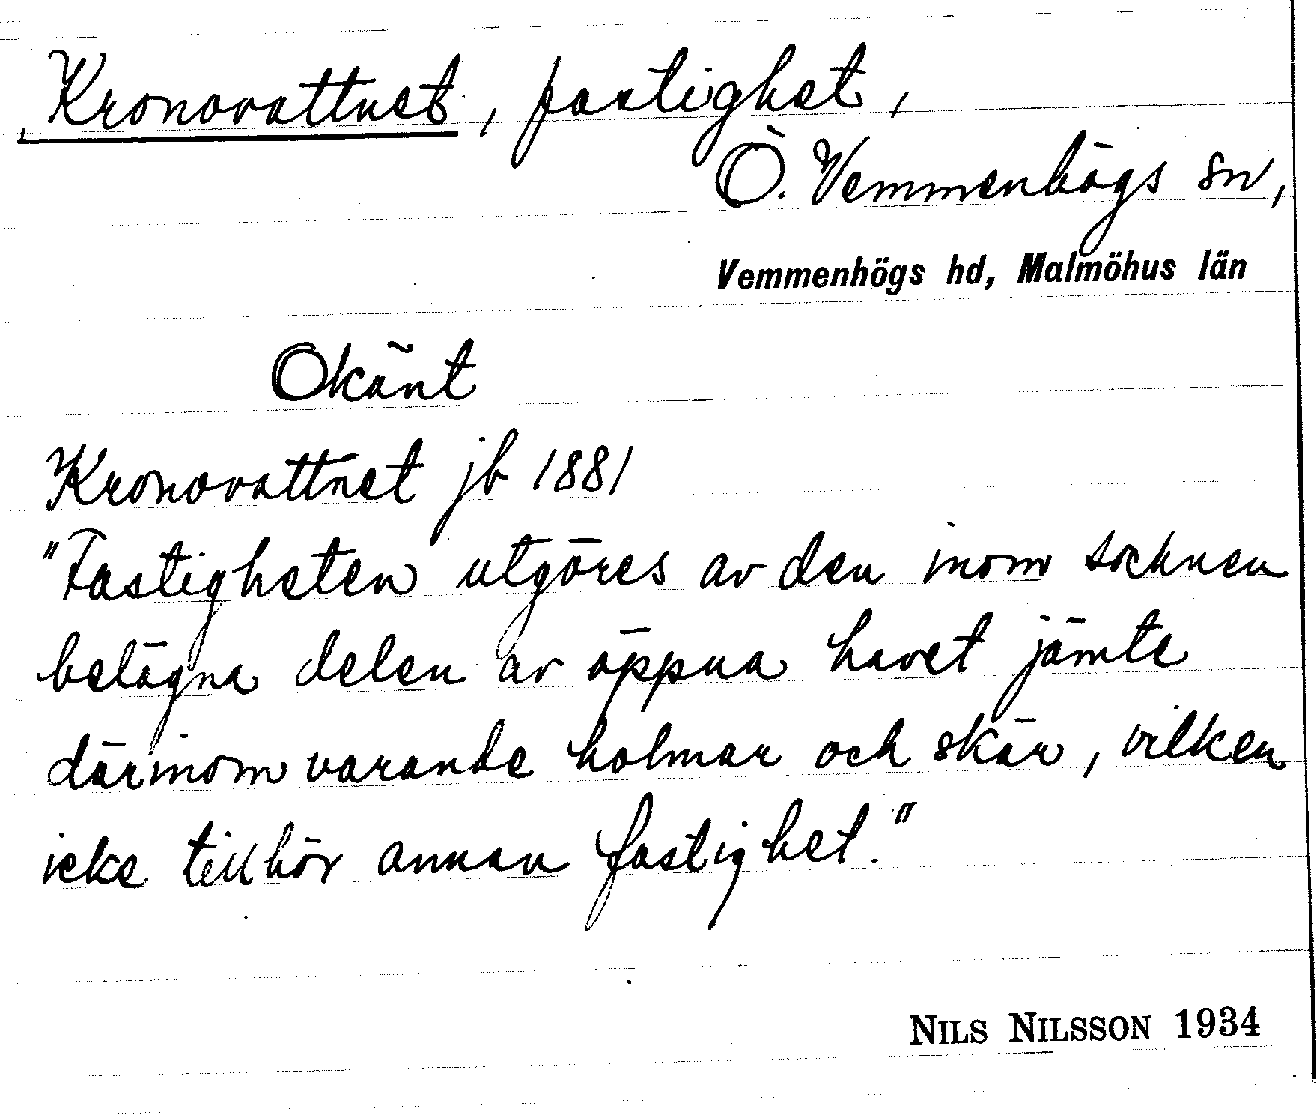 Kronovattnet, fastighet,
Ö. Vemmenhögs sn,
Vemmenhögs hd, Malmöhus län
Okänt
Kronovattnet jb 1881
"Fastigheten utgöres av den inom socknen
belägna delen av öppna havet jämte
därinom varande holmar och skär, vilken
icke tillhör annan fastighet."
NILS NILSSON 1934